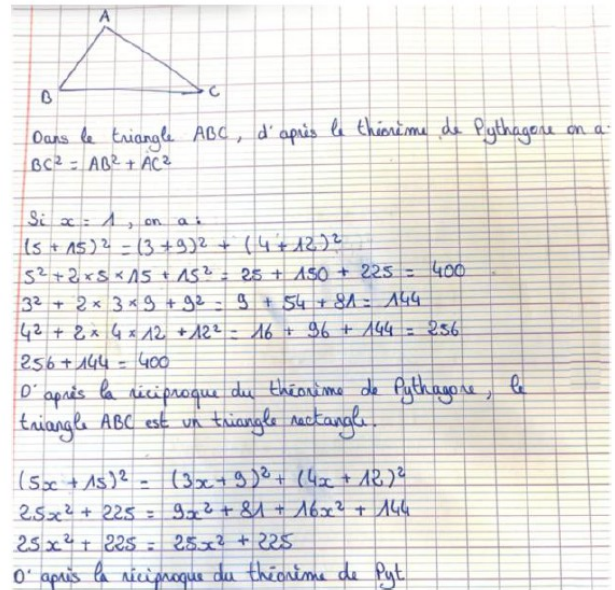 A
B
C
Dans le triangle ABC, d'après le théorème de Pythagore on a:
BC² = AB² + AC²
Si x = 1, on a:
(5 + 15)² = (3 + 9)² + (4 + 12)²
5² + 2 × 5 × 15 + 15² = 25 + 150 + 225 = 400
3² + 2 × 3 × 9 + 9² = 9 + 54 + 81 = 144
4² + 2 × 4 × 12 + 12² = 16 + 96 + 144 = 256
256 + 144 = 400
D'après la réciproque du théorème de Pythagore, le
triangle ABC est un triangle rectangle.
(5x + 15)² = (3x + 9)² + (4x + 12)²
25x² + 225 = 9x² + 81 + 16x² + 144
25x² + 225 = 25x² + 225
D'après la réciproque du théorème de Pyt